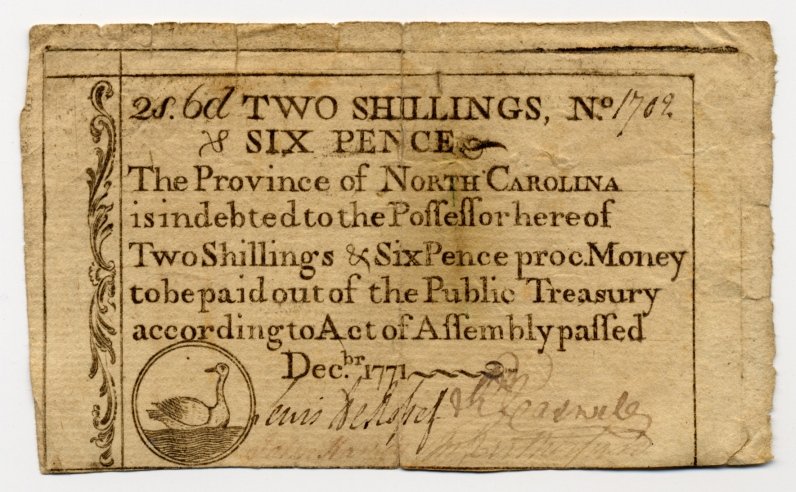 2s.6d TWO SHILLINGS, No. 1702
& SIX PENCE
The Province of NORTH CAROLINA
is indebted to the Poſſeſſor hereof
Two Shillings & Six Pence proc. Money
to be paid out of the Public Treasury
according to Act of Aſſembly paſſed
Dec.br 1771
Lewis DeRoſſet Rd Caswell